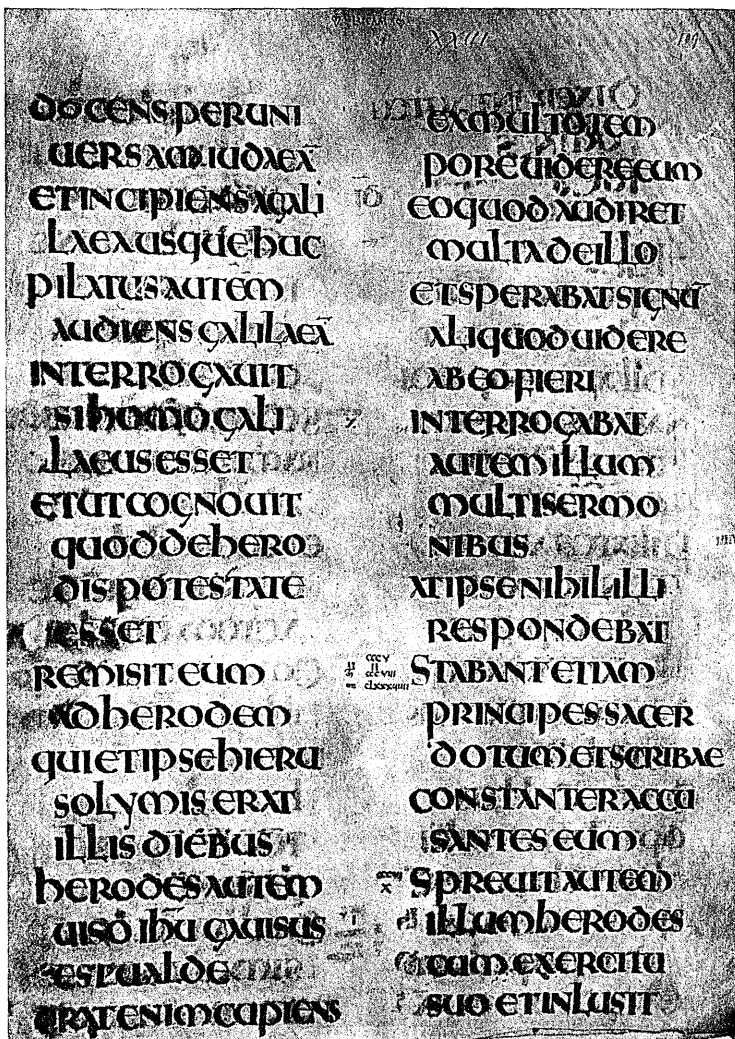 XXIII
DOCENS PER UNI
UERSAM IUDAEĀ
ET INCIPIENS A GALI
LAEA USQUE HUC
PILATUS AUTEM
AUDIENS GALILAEĀ
INTERROGAUIT
SI HOMO GALI
LAEUS ESSET
ET UT COGNOUIT
QUOD DE HERO
DIS POTESTATE
ESSET
REMISIT EUM
AD HERODEM
QUI ET IPSE HIERU
SOLYMIS ERAT
ILLIS DIEBUS
HERODES AUTEM
UISO IHU GAUISUS
EST UALDE
ERAT ENIM CUPIENS
EX MULTO TEM
PORE UIDERE EUM
EO QUOD AUDIRET
MULTA DE ILLO
ET SPERABAT SIGNŪ
ALIQUOD UIDERE
AB EO FIERI
INTERROGABAT
AUTEM ILLUM
MULTIS SERMO
NIBUS
AT IPSE NIHIL ILLI
RESPONDEBAT
CCCV
II
CCCVIII
CLXXXXIIII
STABANT ETIAM
PRINCIPES SACER
DOTUM ET SCRIBAE
CONSTANTER ACCU
SANTES EUM
X
SPREUIT AUTEM
ILLUM HERODES
CUM EXERCITU
SUO ET INLUSIT